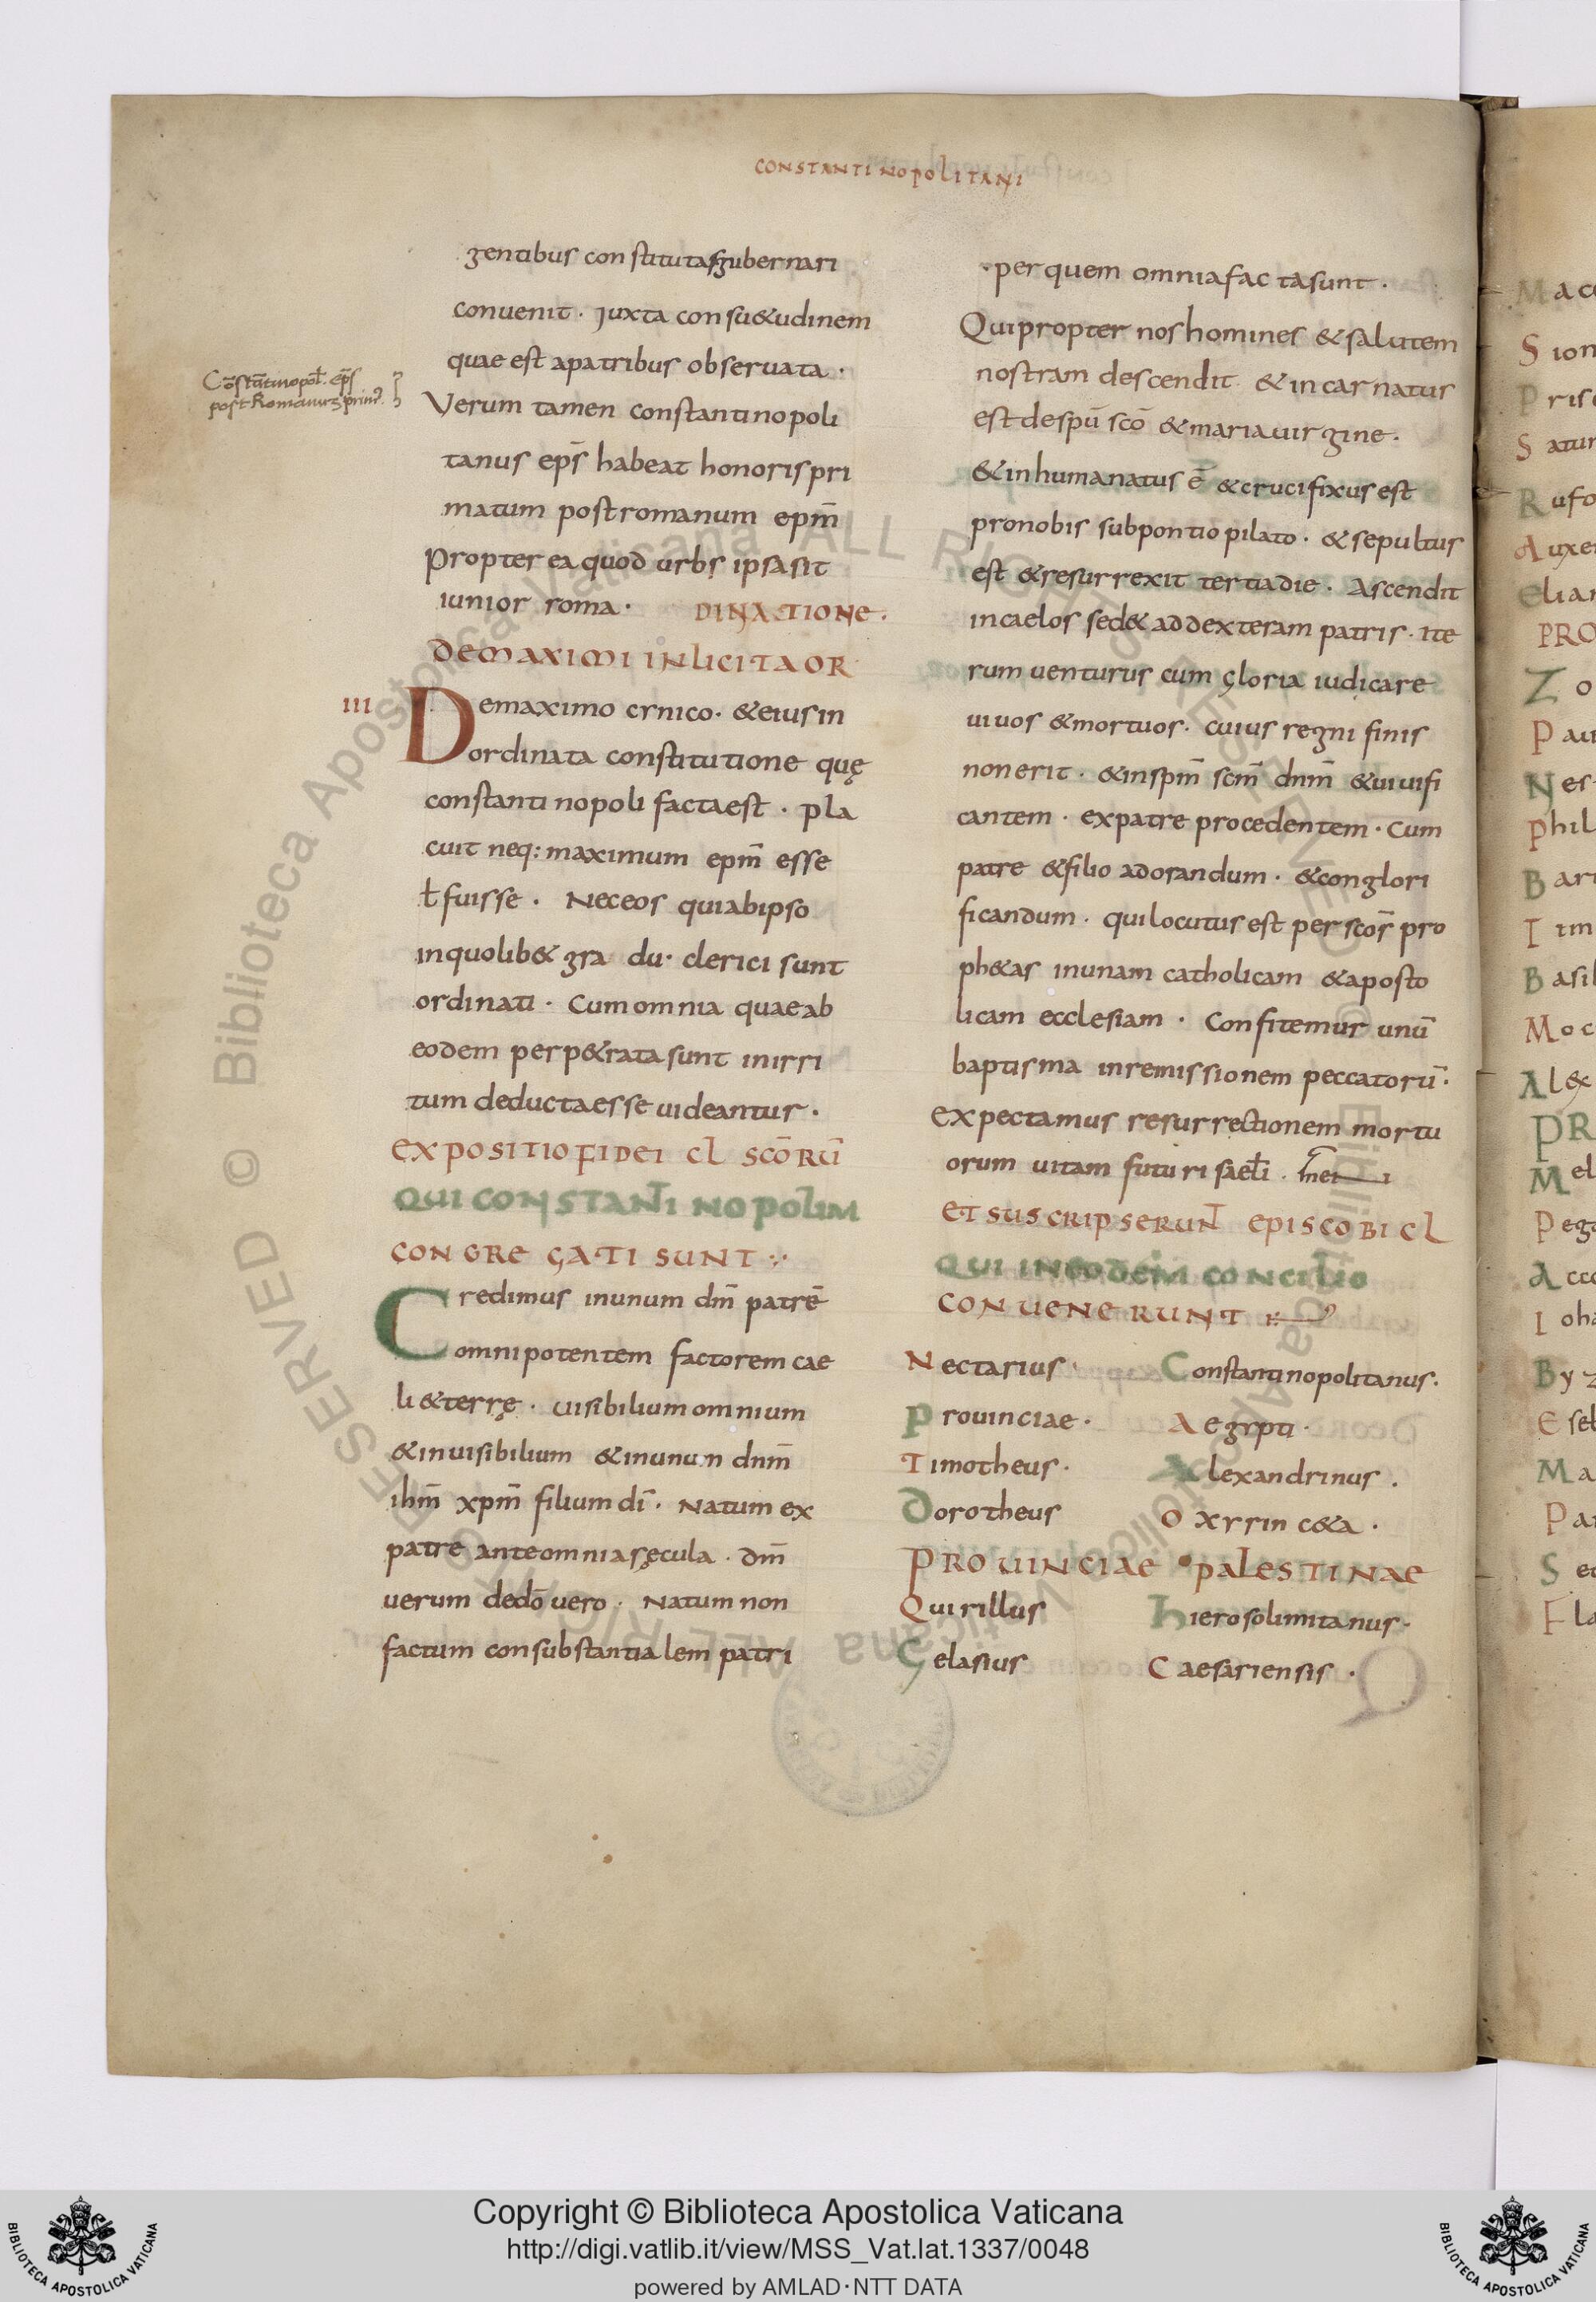 CONSTANTINOPOLITANI
gentibus constitutas gubernari
conuenit · Iuxta consu&udinem
quae est apatribus obseruata ·
Verum tamen constantinopoli
tanus ep̄s habeat honoris pri
matum post romanum ep̄m
Propter ea quod urbs ipsa sit
iunior roma · DINATIONE ·
DE MAXIMI INLICITA OR
III
Demaximo crnico · &eius in
ordinata constitutione quę
constantinopoli facta est · pla
cuit neq: maximum ep̄m esse
ł fuisse · Nec eos qui ab ipso
in quolib& gra du · clerici sunt
ordinati · Cum omnia quae ab
eodem perp&rata sunt in irri
tum deducta esse uideantur ·
EXPOSITIO FIDEI CL SCŌRŪ
QUI CONSTANTI NOPOLIM
CONGREGATI SUNT
Credimus in unum dm̄ patrē
omnipotentem factorem cae
li &terrę · uisibilium omnium
&inuisibilium &in unum dnm̄
ihm̄ xpm̄ filium dī · Natum ex
patre ante omnia sęcula · dm̄
uerum dedō uero · Natum non
factum consubstantialem patri
· per quem omnia facta sunt ·
Qui propter nos homines & salutem
nostram descendit & incarnatus
est de spū scō & maria uirgine ·
&inhumanatus ē & crucifixus est
pro nobis sub pontio pilato · & sepultus
est & resurrexit tertia die · Ascendit
in caelos sed& ad dexteram patris · ite
rum uenturus cum gloria iudicare
uiuos & mortuos · cuius regni finis
non erit · &in spm̄ scm̄ dnm̄ &uiuifi
cantem · ex patre procedentem · Cum
patre & filio adorandum · & conglori
ficandum · qui locutus est per scōs pro
ph&as in unam catholicam & aposto
licam ecclesiam · Confitemur unū
baptisma in remissionem peccatorū ·
Expectamus resurrectionem mortu
orum uitam futuri saeƚi ·
ET SUSCRIPSERUNT EPISCOBI CL
QUI IN EODEM CONCILIO
CONUENERUNT
Nectarius · Constantinopolitanus ·
Prouinciae · Aegypti ·
Timotheus · Alexandrinus ·
Dorotheus Oxrrinc&a ·
PROUINCIAE PALESTINAE
Quirillus hierosolimitanus ·
Gelasius Caesariensis ·
Copyright © Biblioteca Apostolica Vaticana
http://digi.vatlib.it/view/MSS_Vat.lat.1337/0048
powered by AMLAD·NTT DATA
BIBLIOTECA APOSTOLICA VATICANA
BIBLIOTECA APOSTOLICA VATICANA